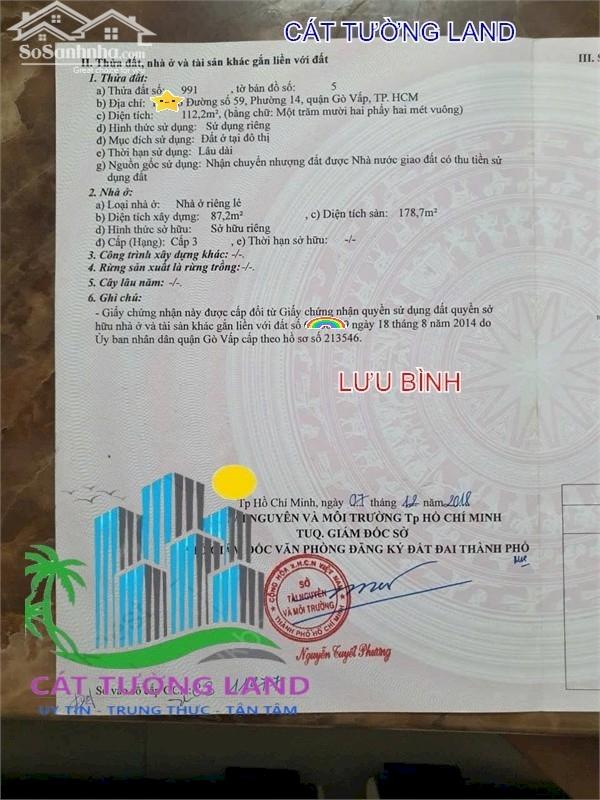 SoSanhnha.com
Great choice for great house
CÁT TƯỜNG LAND
II. Thửa đất, nhà ở và tài sản khác gắn liền với đất
III.
1. Thửa đất:
a) Thửa đất số: 991 , tờ bản đồ số: 5
b) Địa chỉ: Đường số 59, Phường 14, quận Gò Vấp, TP. HCM
c) Diện tích: 112,2m², (bằng chữ: Một trăm mười hai phẩy hai mét vuông)
d) Hình thức sử dụng: Sử dụng riêng
đ) Mục đích sử dụng: Đất ở tại đô thị
e) Thời hạn sử dụng: Lâu dài
g) Nguồn gốc sử dụng: Nhận chuyển nhượng đất được Nhà nước giao đất có thu tiền sử
dụng đất
2. Nhà ở:
a) Loại nhà ở: Nhà ở riêng lẻ
b) Diện tích xây dựng: 87,2m² , c) Diện tích sàn: 178,7m²
d) Hình thức sở hữu: Sở hữu riêng
đ) Cấp (Hạng): Cấp 3 , e) Thời hạn sở hữu: -/-
3. Công trình xây dựng khác: -/-.
4. Rừng sản xuất là rừng trồng: -/-.
5. Cây lâu năm: -/-.
6. Ghi chú:
- Giấy chứng nhận này được cấp đổi từ Giấy chứng nhận quyền sử dụng đất quyền sở
hữu nhà ở và tài sản khác gắn liền với đất số 9 ngày 18 tháng 8 năm 2014 do
Ủy ban nhân dân quận Gò Vấp cấp theo hồ sơ số 213546.
LƯU BÌNH
Tp Hồ Chí Minh, ngày 07 tháng 12 năm 2018
NGUYÊN VÀ MÔI TRƯỜNG Tp HỒ CHÍ MINH
TUQ. GIÁM ĐỐC SỞ
ĐỐC VĂN PHÒNG ĐĂNG KÝ ĐẤT ĐAI THÀNH PHỐ
CỘNG HÒA X.H.C.N VIỆT NAM
SỞ
TÀI NGUYÊN
VÀ MÔI TRƯỜNG
THÀNH PHỐ HỒ CHÍ MINH
Nguyễn Tuyết Phương
Số vào sổ cấp GCN:
CÁT TƯỜNG LAND
UY TÍN - TRUNG THỰC - TẬN TÂM